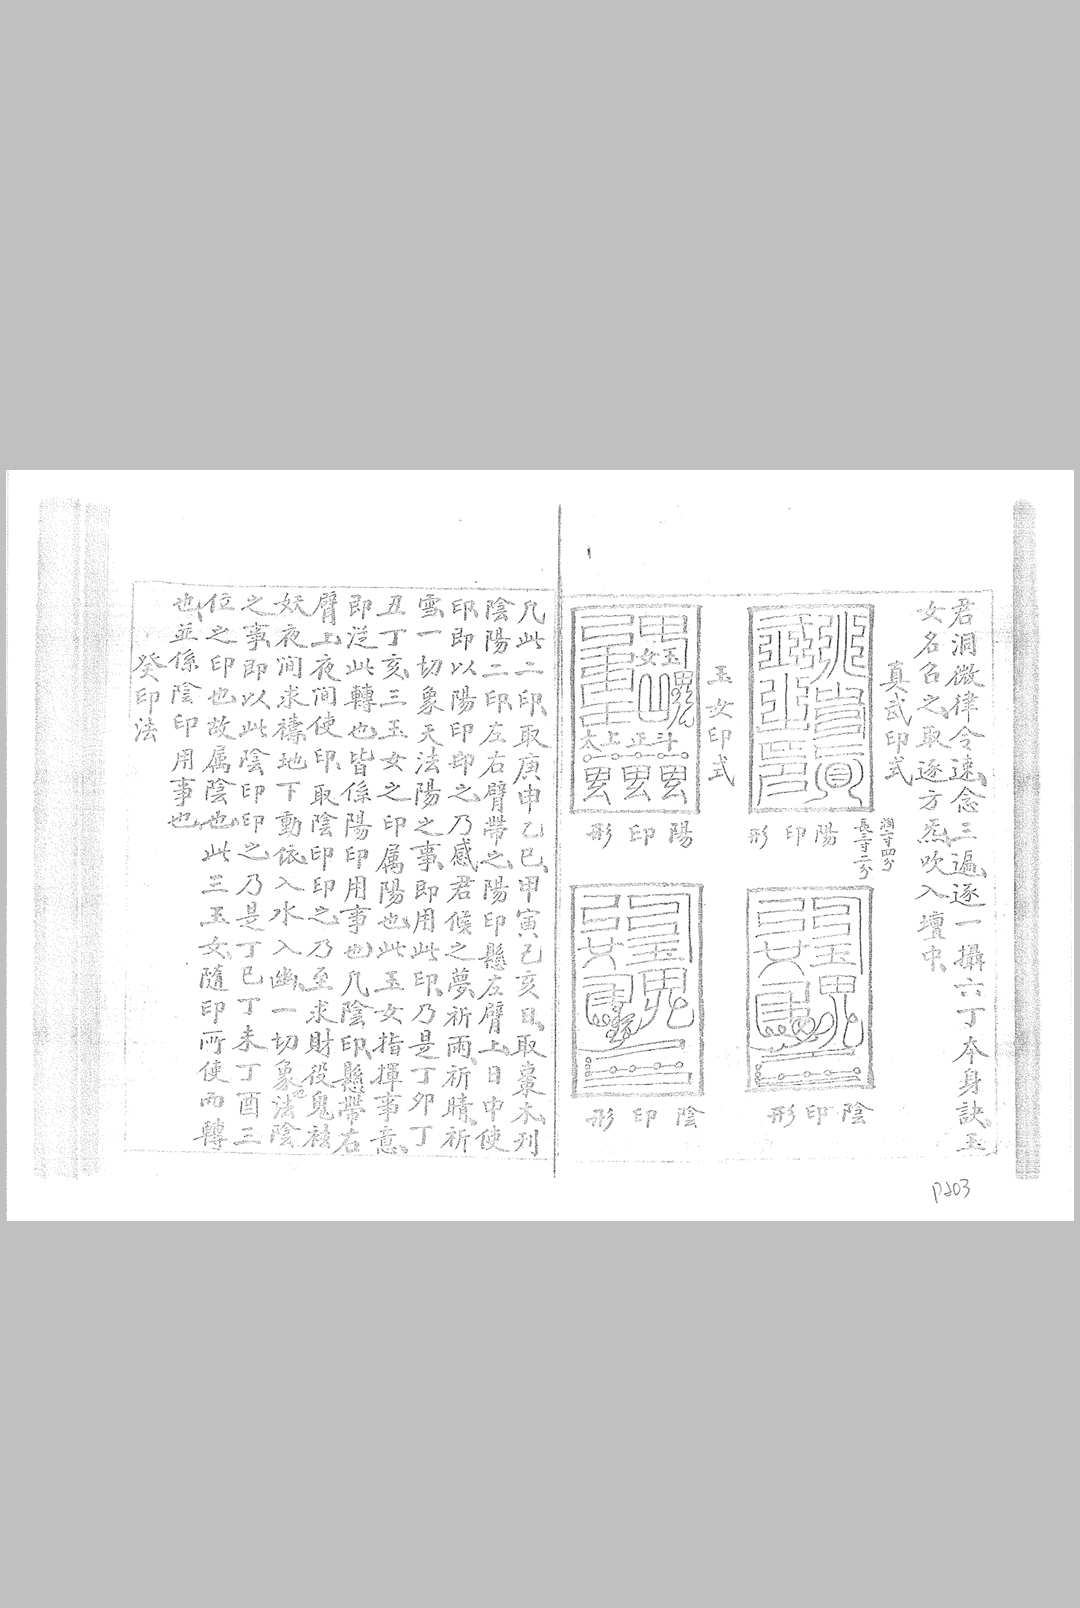 君洞微律令速念三遍逐一攝六丁本身訣玉
女名召之取逐方炁吹入壇中
真武印式
濶一寸四分
長二寸二分
陽印形
陰印形
玉女印式
玉女
斗正上太
陽印形
陰印形
凡此二印取庚申乙巳甲寅己亥日取棗木刋
陰陽二印左右臂帶之陽印懸左臂上日中使
印即以陽印印之乃感君候之夢祈雨祈晴祈
雪一切象天法陽之事即用此印乃是丁夘丁
丑丁亥三玉女之印属陽也此玉女指揮事意
即泛此轉也皆係陽印用事也凡陰印懸帶右
臂上夜间使印取陰印印之乃至求財役鬼祓
妖夜间求禱地下動依入水入幽一切象地法陰
之事即以此陰印印之乃是丁巳丁未丁酉三
位之印也故属陰也此三玉女隨印所使而轉
也並係陰印用事也
癸印法
P203